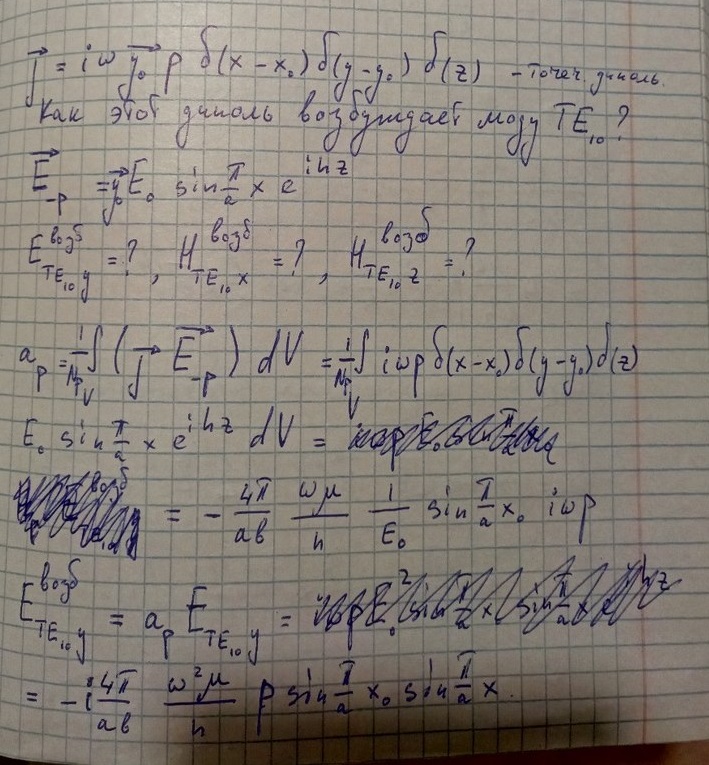 j⃗ = iω y⃗₀ p δ(x - x₀) δ(y - y₀) δ(z) - точеч. диполь.
Как этот диполь возбуждает моду TE₁₀?
E⃗₋ₚ = y⃗₀ E₀ sin π/a x e^{ihz}
E^{возб}_{TE₁₀ y} = ?, H^{возб}_{TE₁₀ x} = ?, H^{возб}_{TE₁₀ z} = ?
aₚ = 1/Nₚ ∫_V (j⃗ E⃗₋ₚ) dV = 1/Nₚ ∫_V iωp δ(x - x₀) δ(y - y₀) δ(z)
E₀ sin π/a x e^{ihz} dV =
= - 4π/ab ωμ/h 1/E₀ sin π/a x₀ iωp
E^{возб}_{TE₁₀ y} = aₚ E_{TE₁₀ y} =
= - i 4π/ab ω²μ/h p sin π/a x₀ sin π/a x.